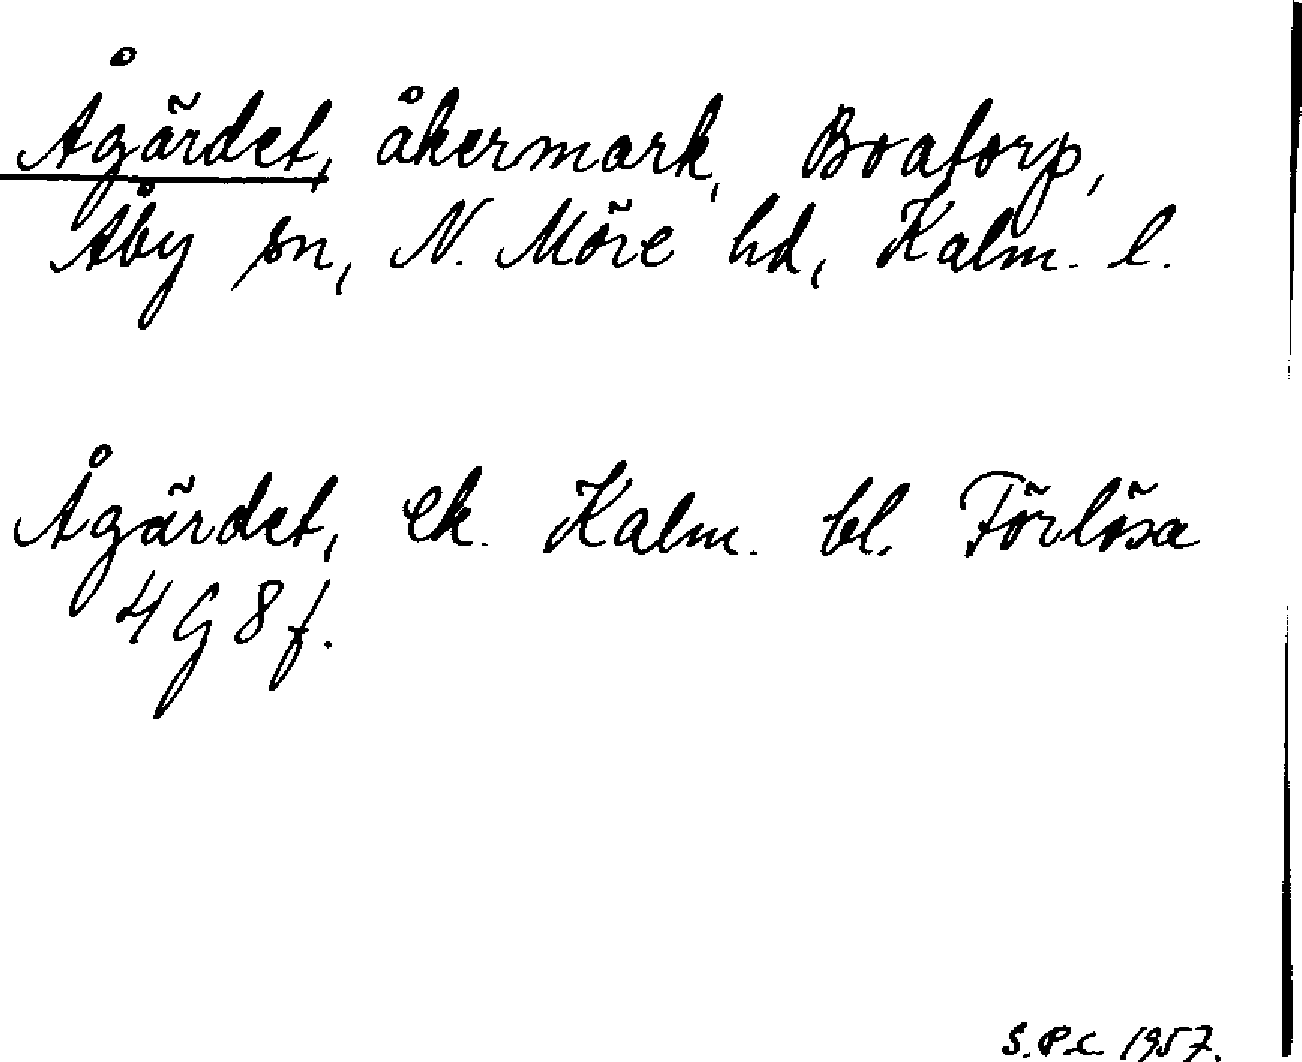 Ågärdet, åkermark, Boatorp,
Åby sn, N. Möre hd, Kalm. l.
Ågärdet, ek. Kalm. bl. Förlösa
4 G 8 f.
S.P.C 1957.